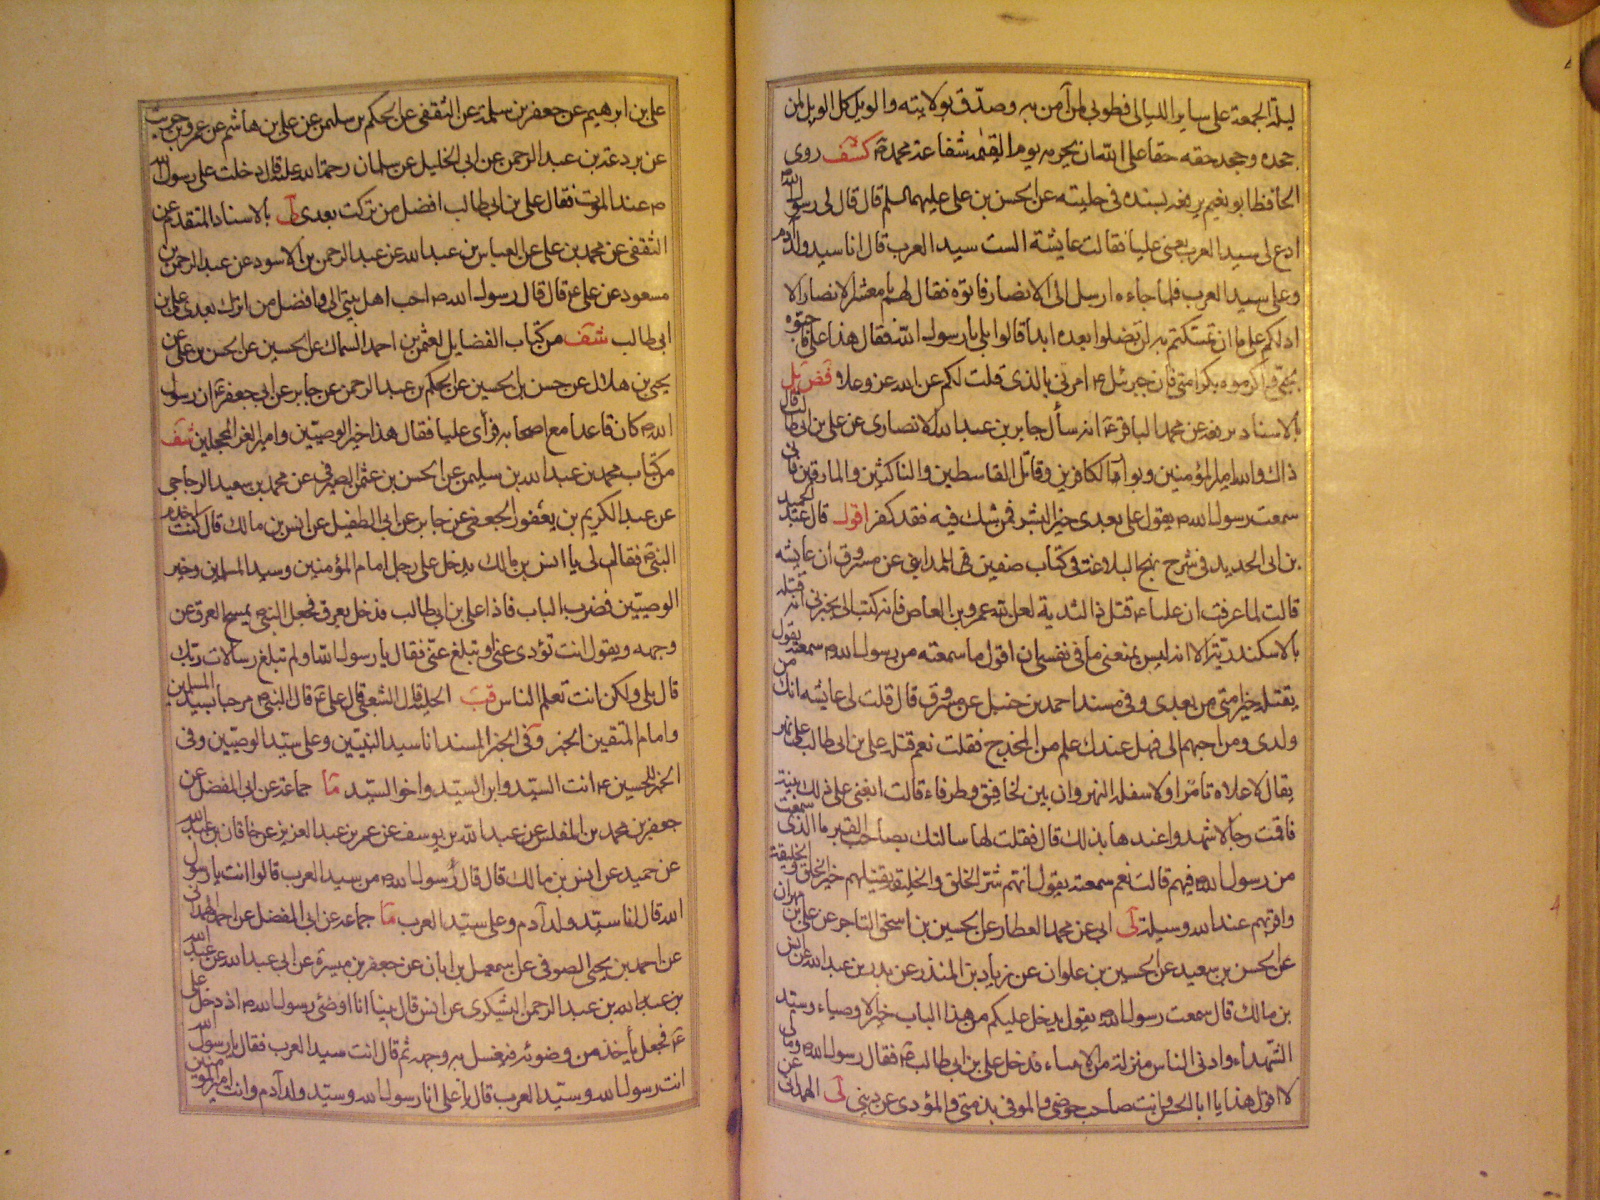 ليلة الجمعة على ساير الليالى فطوبى لمن آمن به وصدّق بولايته والويل كل الويل لمن
جحده وجحد حقه حقا على الله ان يحرمه يوم القيمة شفاعة محمد ص كشف روى
الحافظ ابو نعيم يرفعه بسنده فى حليته عن الحسن بن على عليهما السلم قال قال لى رسول الله ص
ادع لى سيد العرب يعنى عليا فقالت عايشة الست سيد العرب قال انا سيد ولد آدم
وعلى سيد العرب فلما جاءه ارسل الى الانصار فاتوه فقال لهم يا معشر الانصار الا
ادلكم على ما ان تمسكتم به لن تضلوا بعده ابدا قالوا بلى يا رسول الله فقال هذا على فاحبوه
بحبى واكرموه بكرامتى فان جبرئيل ع امرنى بالذى قلت لكم عن الله عز وعلا فض يل
بالاسناد يرفعه عن محمد الباقر ع انه سأل جابر بن عبد الله الانصارى عن على بن ابى طالب قال
ذاك والله امير المؤمنين وبوار الكافرين وقاتل القاسطين والناكثين والمارقين فانى
سمعت رسول الله ص يقول على بعدى خير البشر فمن شك فيه فقد كفر اقول قال عبد الحميد
بن ابى الحديد فى شرح نهج البلاغة فى كتاب صفين للمداينى عن مسروق ان عايشه
قالت لما عرفت ان عليا ع قتل ذا الثدية لعن الله عمرو بن العاص فانه كتب الى يخبرنى انه قتله
بالاسكندرية الا انه ليس يمنعنى ما فى نفسى ان اقول ما سمعته من رسول الله ص سمعته يقول
يقتله خير امتى من بعدى وفى مسند احمد بن حنبل عن مسروق قال قلت لى عايشه انك من
ولدى ومن احبهم الى فهل عندك علم من المخدج فقلت نعم قتله على بن ابى طالب على نهر
يقال لاعلاه تامرا ولاسفله النهروان بين لخاقيق وطرفاء قالت ابغنى على ذلك بينة
فاقمت رجالا شهدوا عندها بذلك قال فقلت لها سالتك بصاحب القبر ما الذى سمعت
من رسول الله ص فيهم قالت نعم سمعته يقول انهم شر الخلق والخليقة يقتلهم خير الخلق والخليقة
واقربهم عند الله وسيلة لى ابى عن محمد العطار عن الحسين بن اسحق التاجر عن على بن مهزيار
عن الحسن بن سعيد عن الحسين بن علوان عن زياد بن المنذر عن بدر بن عبد الله عن انس
بن مالك قال سمعت رسول الله ص يقول يدخل عليكم من هذا الباب خير الاوصياء وسيد
الشهداء وادنى الناس منزلة من الانبياء فدخل على بن ابى طالب ع فقال رسول الله ص ومالى
لا اقول هذا يا ابا الحسن وانت صاحب حوضى والموفى بذمتى والمؤدى عن دينى لى الهمدانى عن
على بن ابرهيم عن جعفر بن سلمة عن الثقفى عن الحكم بن سليمن عن على بن هاشم عن عمرو بن حريث
عن بردعة بن عبد الرحمن عن ابى الخليل عن سلمان رحمة الله عليه قال دخلت على رسول الله
ص عند الموت فقال على بن ابى طالب افضل من تركت بعدى لى بالاسناد المتقدم عن
الثقفى عن محمد بن على عن العباس بن عبد الله عن عبد الرحمن بن الاسود عن عبد الرحمن بن
مسعود عن على ع قال قال رسول الله ص احب اهل بيتى الى وافضل من اترك بعدى على بن
ابى طالب شف من كتاب الفضايل لعثمن بن احمد السماك عن الحسين عن الحسن بن على عن
يحيى بن هلال عن حسن بن الحسين عن الحكم بن عبد الرحمن عن جابر عن ابى جعفر ع ان رسول
الله ص كان قاعدا مع اصحابه فرأى عليا فقال هذا خير الوصيين وامير الغر المحجلين شف
من كتاب محمد بن عبد الله بن سليمن عن الحسن بن عثمن الصيرفى عن محمد بن سعيد الزجاجى
عن عبد الكريم بن يعفور الجعفى عن جابر عن ابى الطفيل عن انس بن مالك قال كنت اخدم
النبى ص فقال لى يا انس بن مالك يدخل على رجل امام المؤمنين وسيد المسلمين وخير
الوصيين فضرب الباب فاذا على بن ابى طالب فدخل يعرق فجعل النبى ص يمسح العرق عن
وجهه ويقول انت تؤدى عنى او تبلغ عنى فقال يا رسول الله اولم تبلغ رسالات ربك
قال بلى ولكن انت تعلم الناس قب الحلية قال الشعبى قال على ع قال النبى ص مرحبا بسيد المسلمين
وامام المتقين الخبر وفى الخبر المسند انا سيد النبيين وعلى سيد الوصيين وفى
الخبر للحسين ع انت السيد وابن السيد واخو السيد ما جماعة عن ابى المفضل عن
جعفر بن محمد بن المفلس عن عبد الله بن يوسف عن عمر بن عبد العزيز عن خاقان بن عبد الله
عن حميد عن انس بن مالك قال قال رسول الله ص من سيد العرب قالوا انت يا رسول
الله قال انا سيد ولد آدم وعلى سيد العرب ما جماعة عن ابى المفضل عن احمد الهمدانى
عن احمد بن يحيى الصوفى عن اسمعيل بن ابان عن جعفر بن ميسرة عن ابى عبد الله عن عبد الله
بن عبد الله بن عبد الرحمن اليشكرى عن انس قال بينا انا اوضئ رسول الله ص اذ دخل على
ع فجعل يأخذ من وضوئه فيغسل به وجهه ثم قال انت سيد العرب فقال يا رسول الله
انت رسول الله وسيد العرب قال يا على انا رسول الله وسيد ولد آدم وانت امير المؤمنين